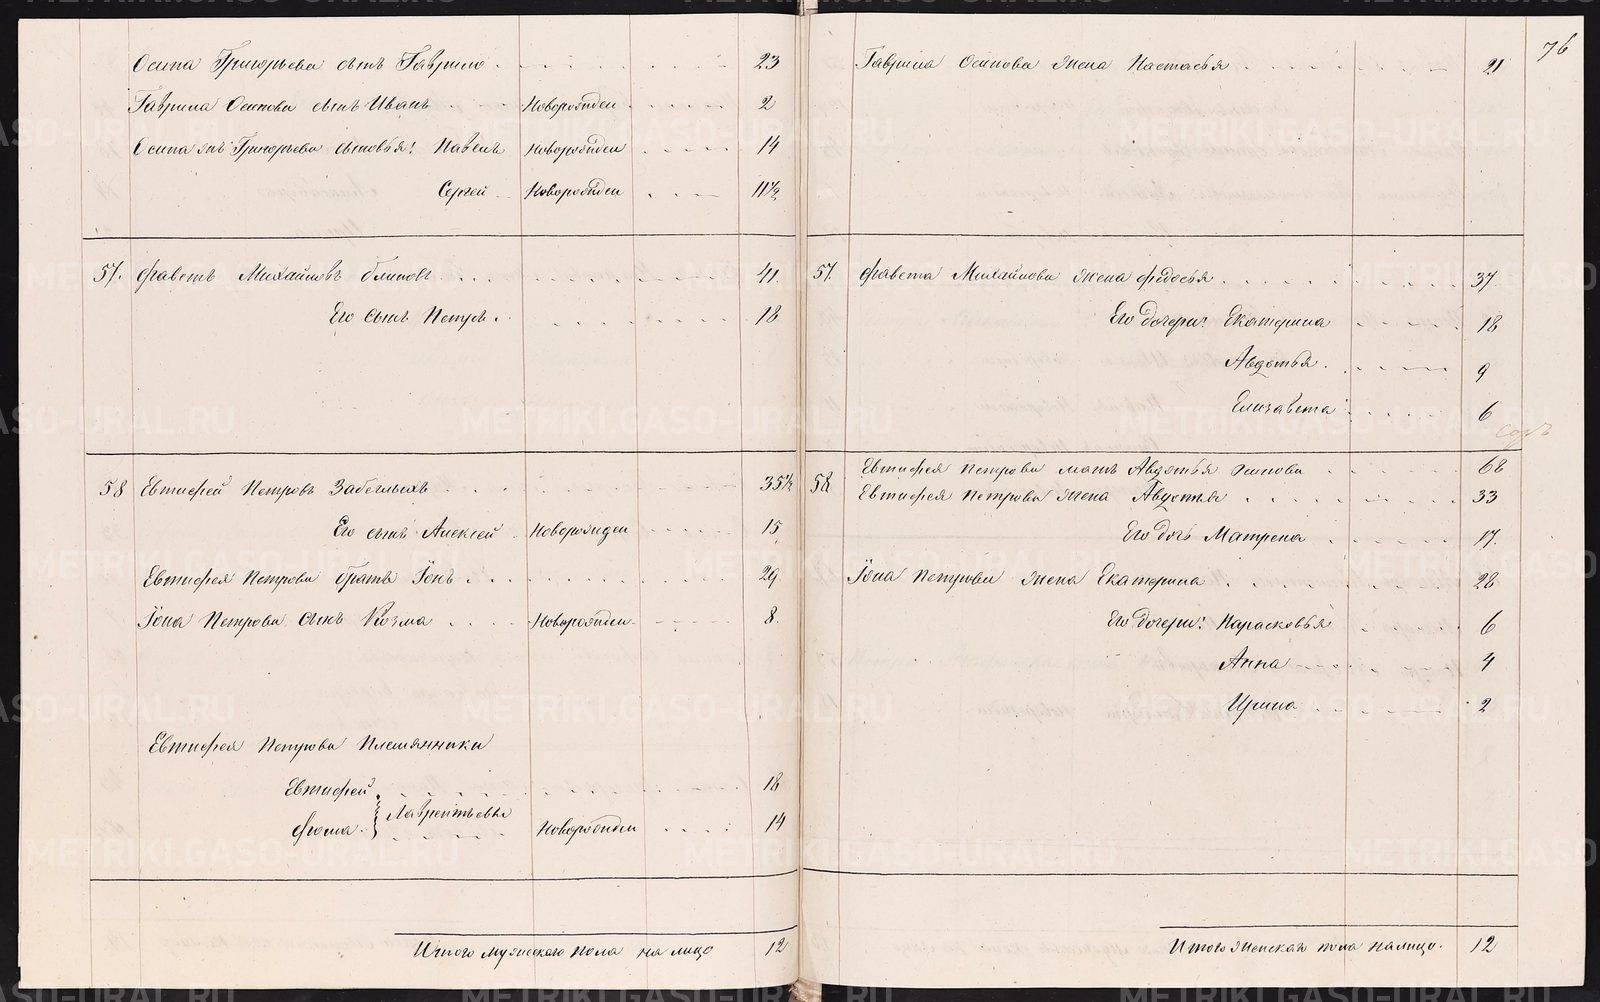 Осипа Григорьева сынъ Гаврило 23
Гаврила Осипова сынъ Иванъ Новорожден 2
Осипа жъ Григорьева сыновья: Павелъ Новорожден 14
Сергей Новорожден 11½
57. Фавстъ Михайловъ Блиновъ 41.
Его сынъ Петръ. 18
58 Евтифей Петровъ Забегыхъ 35½
Его сынъ Алексей Новорожден 15
Евтифея Петрова братъ Іонъ. 29
Іона Петрова сынъ Козма Новорожден 8.
Евтифея Петрова Племянники
Евтифей 18
Лаврентьевы
Фома Новорожден 14
Итого мужескаго пола на лицо 12
76
Гаврила Осипова жена Настасья 21
57. Фавста Михайлова жена Федосья 37
Его дочери: Екатерина 18
Авдотья. 9
Елизавета 6
58 Евтифея Петрова мать Авдотья Осипова 68
Евтифея Петрова жена Авдотья 33
Его дочь Матрена 17.
Іона Петрова жена Екатерина 28
Его дочери: Парасковья 6
Анна 4
Ирина 2
Итого женскаго пола на лицо. 12
METRIKI.GASO-URAL.RU